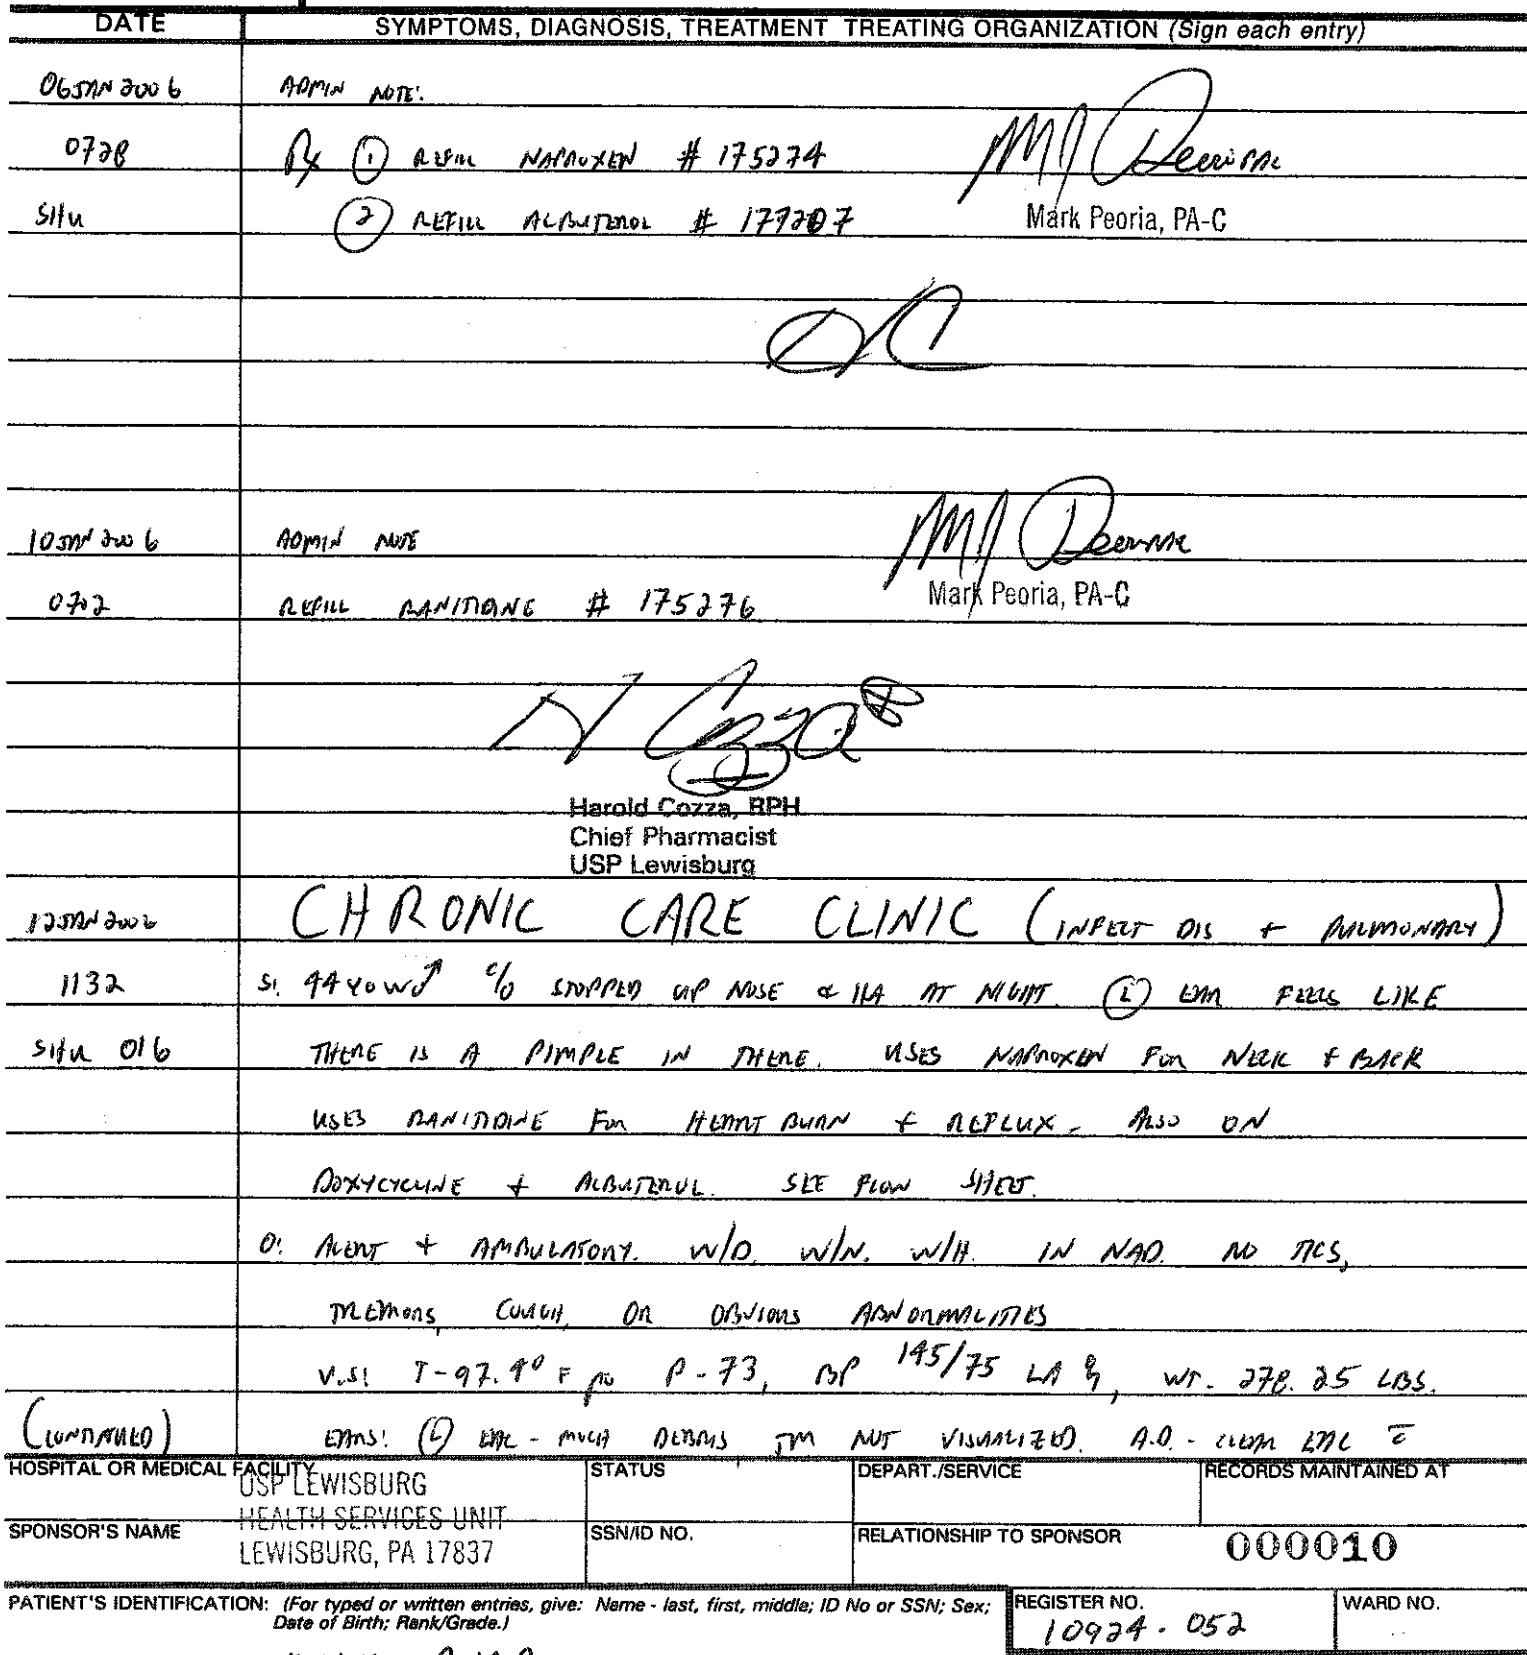 DATE SYMPTOMS, DIAGNOSIS, TREATMENT TREATING ORGANIZATION (Sign each entry)
06 JAN 2006 ADMIN NOTE:
0728 Rx ① REFILL NAPROXEN # 175274
SHU ② REFILL ALBUTEROL # 177207 Mark Peoria, PA-C
10 JAN 2006 ADMIN NOTE
0702 REFILL RANITIDINE # 175276 Mark Peoria, PA-C
H Cozza
Harold Cozza, RPH
Chief Pharmacist
USP Lewisburg
12 JAN 2006 CHRONIC CARE CLINIC (INFECT DIS + PULMONARY)
1132 S: 44 YO W♂ c/o STOPPED UP NOSE & HA AT NIGHT. Ⓛ EAR FEELS LIKE
SHU 016 THERE IS A PIMPLE IN THERE. USES NAPROXEN FOR NECK + BACK
USES RANITIDINE FOR HEART BURN + REFLUX. ALSO ON
DOXYCYCLINE + ALBUTEROL. SEE FLOW SHEET.
O: ALERT + AMBULATORY. W/D. W/N. W/H. IN NAD. NO TICS,
TREMORS, COUGH, OR OBVIOUS ABNORMALITIES
V.S: T-97.4° F po P-73, BP 145/75 LA, WT. 278.25 LBS.
(CONTINUED) EARS: Ⓛ EAC - MUCH DEBRIS TM NOT VISUALIZED. A.D. - CLEAR EAC c̄
HOSPITAL OR MEDICAL FACILITY STATUS DEPART./SERVICE RECORDS MAINTAINED AT
USP LEWISBURG
HEALTH SERVICES UNIT
LEWISBURG, PA 17837
SPONSOR'S NAME SSN/ID NO. RELATIONSHIP TO SPONSOR 000010
PATIENT'S IDENTIFICATION: (For typed or written entries, give: Name - last, first, middle; ID No or SSN; Sex; Date of Birth; Rank/Grade.) REGISTER NO. WARD NO.
10924-052